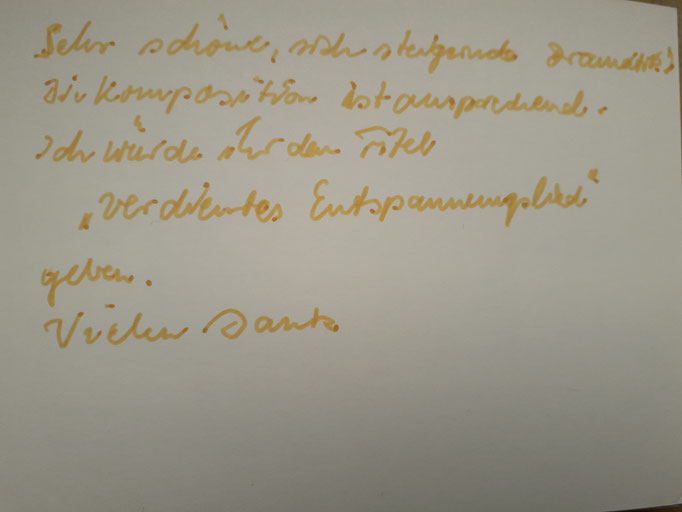 Sehr schöne, sich steigernde Dramatik!
Die Komposition ist ansprechend.
Ich würde ihr den Titel
„Verdientes Entspannungslied"
geben.
Vielen Dank